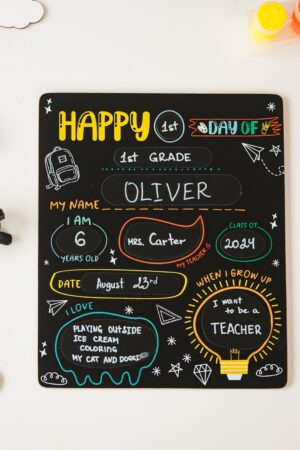 HAPPY 1st DAY OF
1st GRADE
MY NAME OLIVER
I AM
6
YEARS OLD
Mrs. Carter
MY TEACHER IS
CLASS OF
2024
DATE August 23rd
I LOVE
PLAYING OUTSIDE
ICE CREAM
COLORING
MY CAT AND
WHEN I GROW UP
I want
to be a
TEACHER